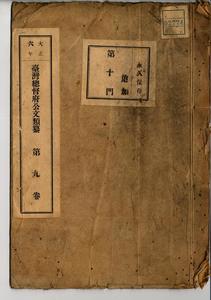 大正
六年
臺灣總督府公文類纂
第九卷
永久保存
追加
第十門